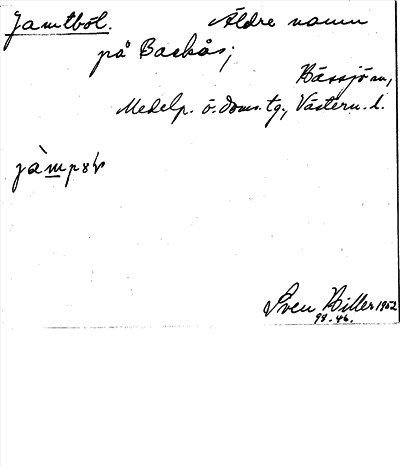 Jamtböl. Äldre namn
på Backås;
Hässjö sn,
Medelp. ö. doms. tg., Västern. l.
Sven Hiller 1952
98.46.